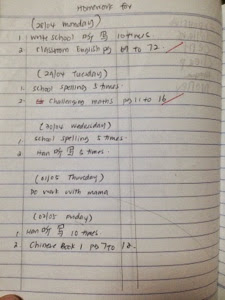 Homework for
(28/04 Monday)
1. Write school 听写 10 times
2. Classroom English pg 69 to 72
(29/04 Tuesday)
1. school spelling 5 times
2. Challenging maths pg 11 to 16
(30/04 Wednesday)
1. school spelling 5 times
2. Han 听写 5 times.
(01/05 Thursday)
Do work with mama
(02/05 Friday)
1. Han 听写 10 times
2 Chinese Book 1 pg 7 to 12.